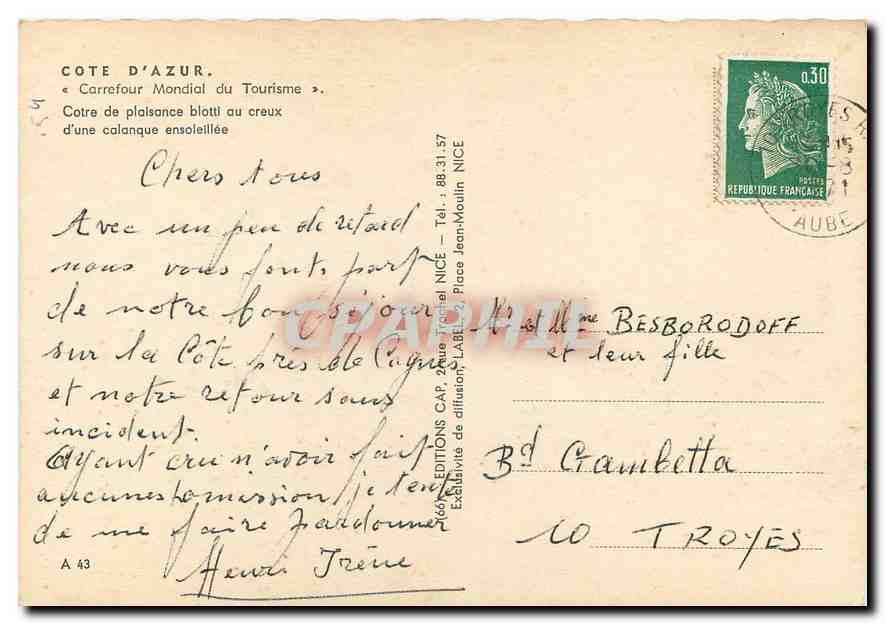 COTE D'AZUR.
« Carrefour Mondial du Tourisme ».
Cotre de plaisance blotti au creux
d'une calanque ensoleillée
Chers tous
Avec un peu de retard
nous vous fonts part
de notre bon séjour
sur la Côte près de Cagnes
et notre retour sans
incident.
Ayant cru n'avoir fait
aucunes omission je tente
de me faire pardonner
Henri Irène
A 43
EDITIONS CAP, 2, rue Trachel NICE — Tél. : 88.31.57
Exclusivité de diffusion, LABEL, 2, Place Jean-Moulin NICE
CPAPHIL
0,30
POSTES
REPUBLIQUE FRANÇAISE
TROYES
15
-8
71
AUBE
Mr et Mme BESBORODOFF
et leur fille
Bd Gambetta
10 TROYES